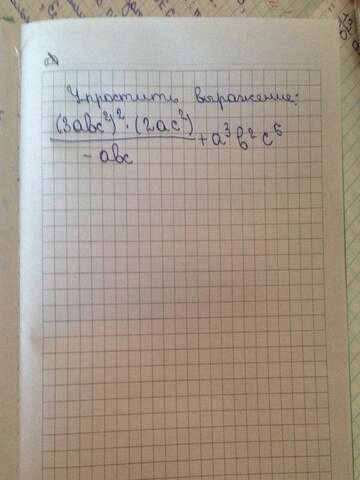 Упростить выражение:
(3abc²)² · (2ac²)
――――――― + a³b²c⁵
- abc